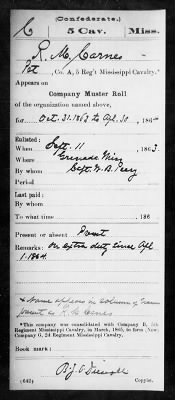 (Confederate.)
C 5 Cav. Miss.
R. M. Carnes
Pvt, Co. A, 5 Reg't Mississippi Cavalry.*
Appears on
Company Muster Roll
of the organization named above,
for Oct. 31. 1863 to Apl. 30, 1864
Enlisted:
When Sept. 11, 1863
Where Grenada Miss
By whom Capt. W. B. Peery
Period
Last paid:
By whom
To what time , 186
Present or absent Present
Remarks: On extra duty since Apl
1. 1864.
* Name appears in column of names
present as R. M.
*This company was consolidated with Company B, 5th
Regiment Mississippi Cavalry, in March, 1865, to form New
Company G, 24 Regiment Mississippi Cavalry.
Book mark:
(642) Copyist.